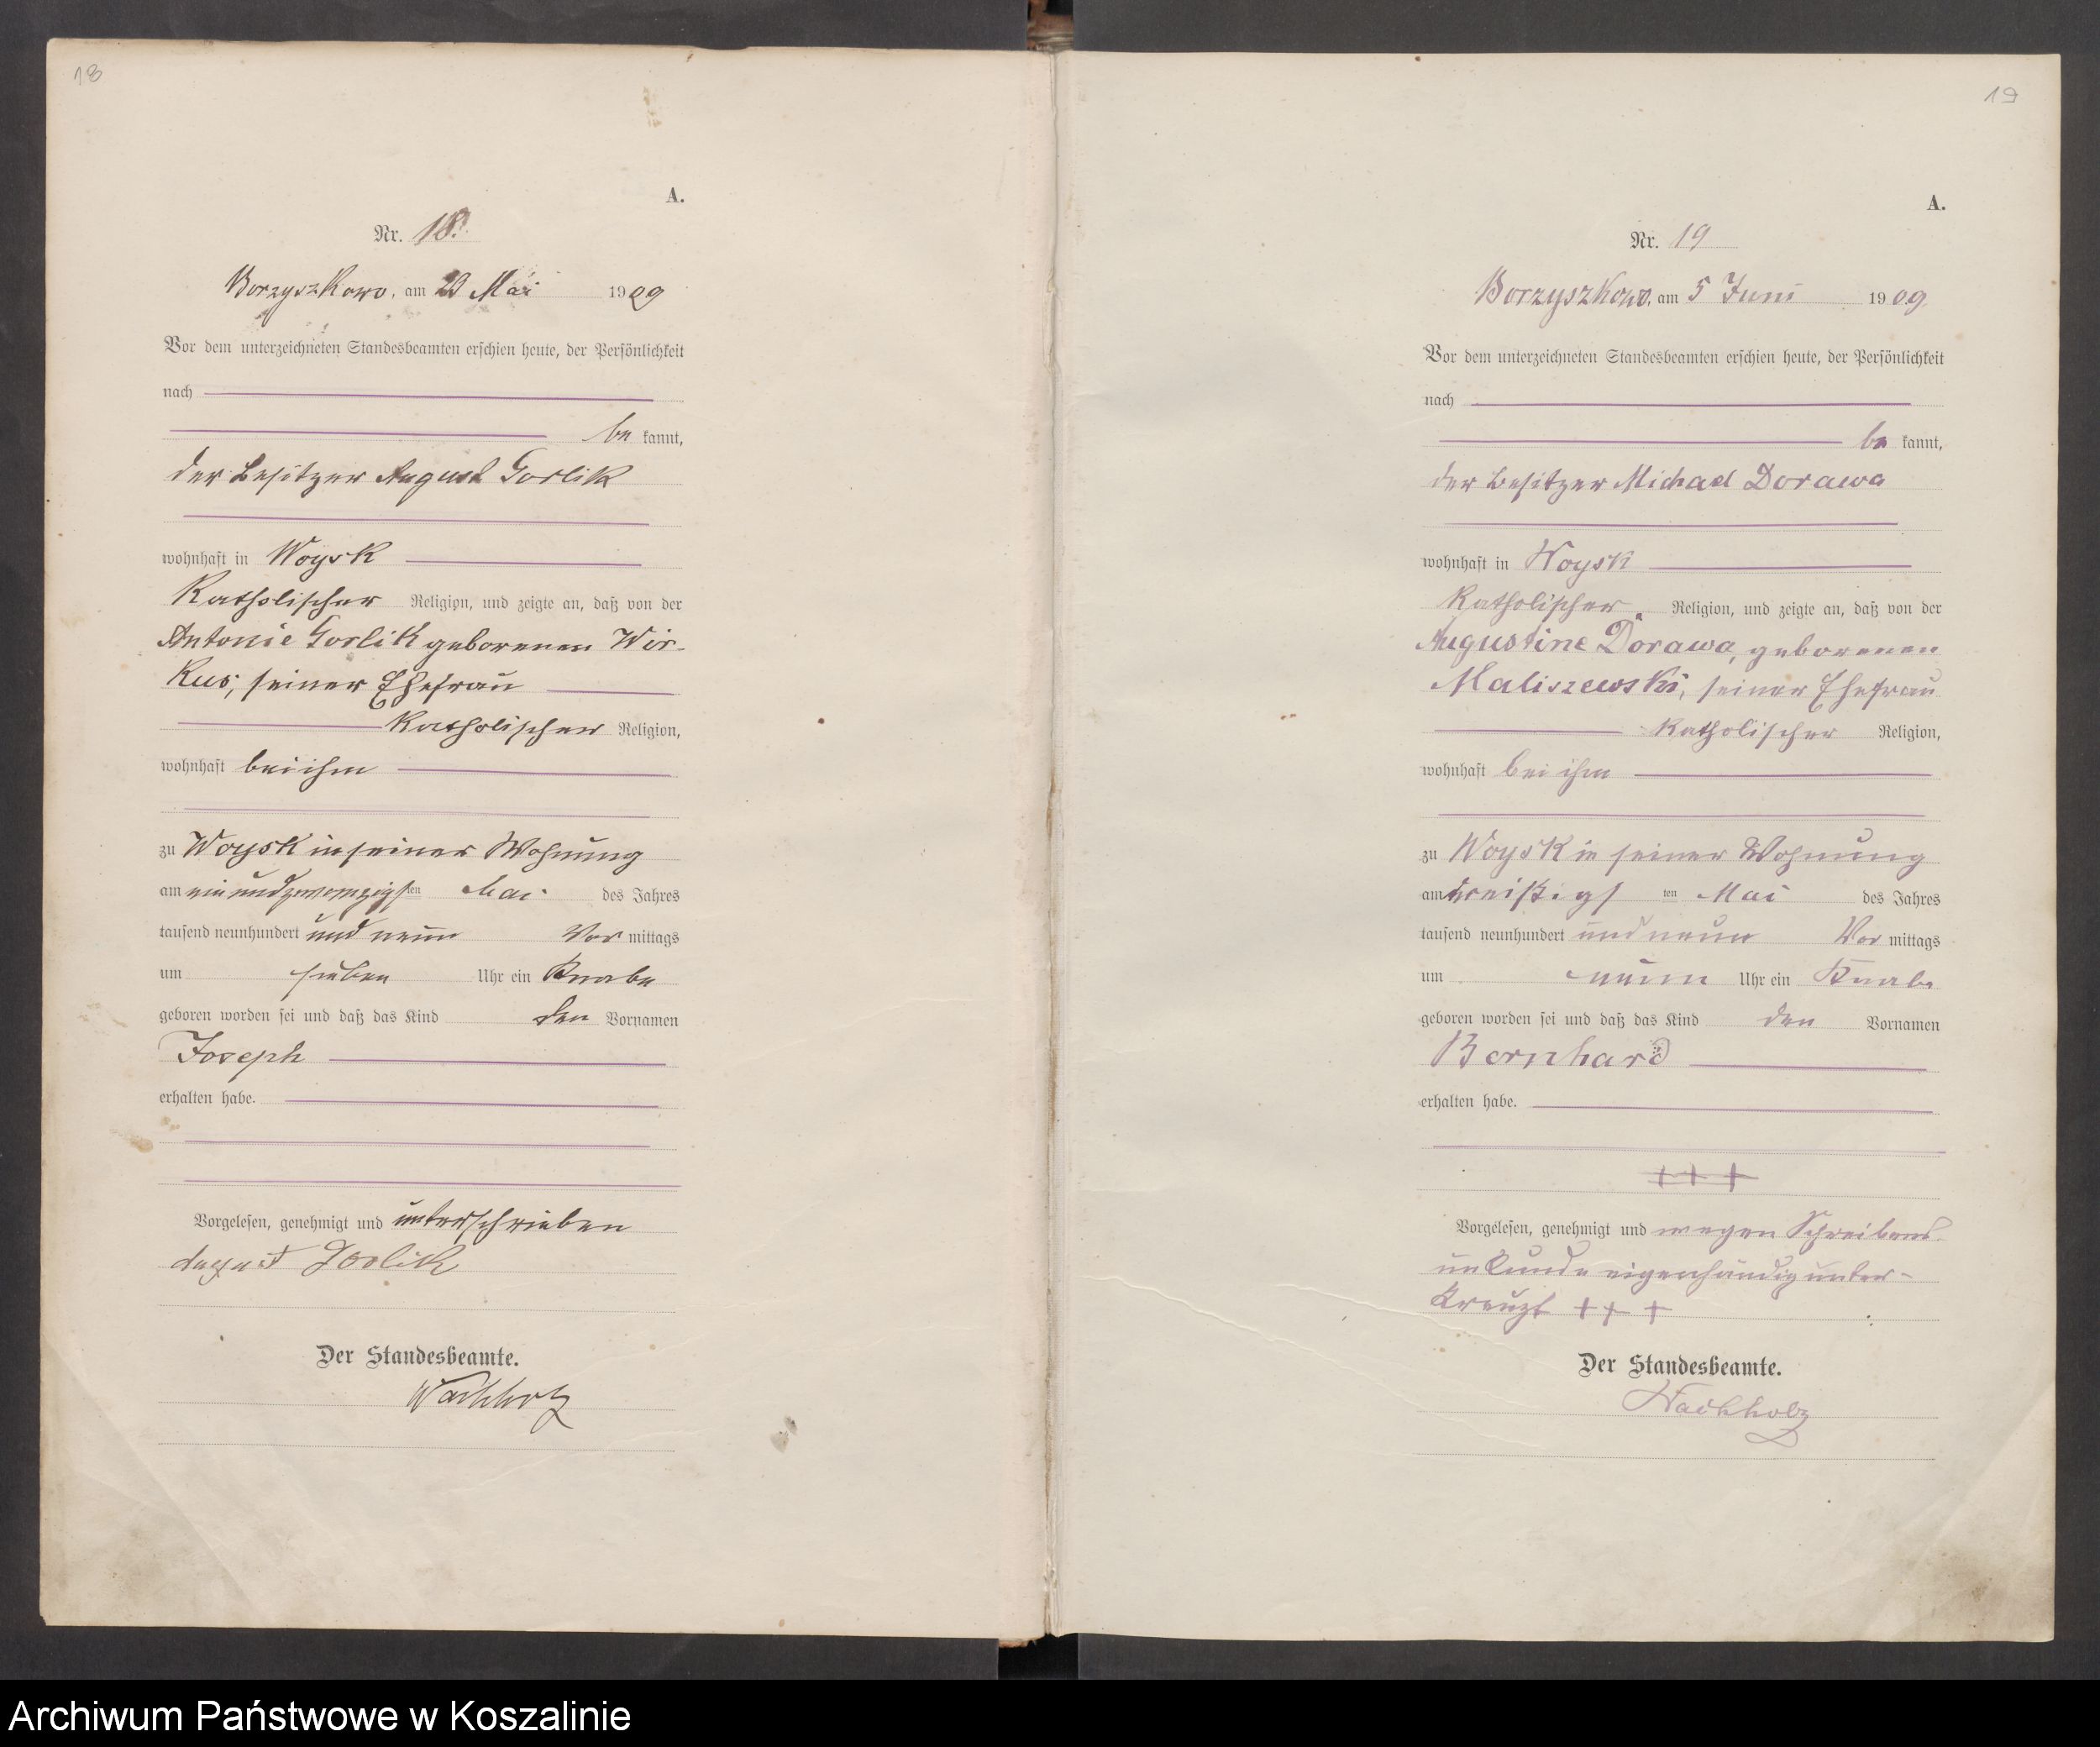 18
A.
Nr. 18.
Borzyszkowo, am Mai 1909
Vor dem unterzeichneten Standesbeamten erschien heute, der Persönlichkeit
nach
be kannt,
der Besitzer August Gorlik
wohnhaft in Woysk
Katholischer Religion, und zeigte an, daß von der
Antonie Gorlik geborenen Wir-
kus, seiner Ehefrau
Katholischer Religion,
wohnhaft bei ihm
zu Woysk in seiner Wohnung
am einundzwanzigsten Mai des Jahres
tausend neunhundert und neun Vor mittags
um sieben Uhr ein Knabe
geboren worden sei und daß das Kind den Vornamen
Joseph
erhalten habe.
Vorgelesen, genehmigt und unterschrieben
August Gorlik
Der Standesbeamte.
Wachholz
19
A.
Nr. 19
Borzyszkowo, am 5 Juni 1909
Vor dem unterzeichneten Standesbeamten erschien heute, der Persönlichkeit
nach
be kannt,
der Besitzer Michael Dorawa
wohnhaft in Woysk
Katholischer Religion, und zeigte an, daß von der
Augustine Dorawa, geborenen
Maliszewski, seiner Ehefrau
Katholischer Religion,
wohnhaft bei ihm
zu Woysk in seiner Wohnung
am dreißigsten Mai des Jahres
tausend neunhundert und neun Vor mittags
um neun Uhr ein Knabe
geboren worden sei und daß das Kind den Vornamen
Bernhard
erhalten habe.
+++
Vorgelesen, genehmigt und wegen Schreibens-
unkunde eigenhändig unter-
kreuzt +++
Der Standesbeamte.
Wachholz
Archiwum Państwowe w Koszalinie